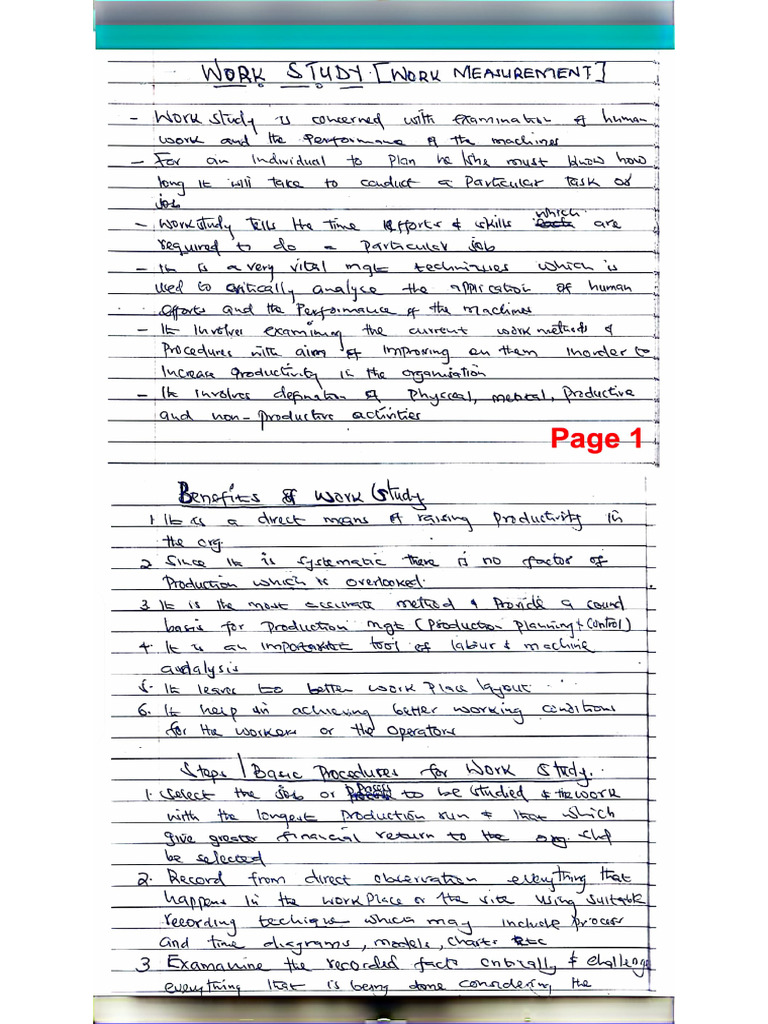 WORK STUDY [WORK MEASUREMENT]
- Work study is concerned with examination of human
work and the performance of the machines
- For an individual to plan he/she must know how
long it will take to conduct a particular task or
job
- Workstudy tells the time efforts & skills which are
required to do a particular job
- It is a very vital mgt techniques which is
used to critically analyse the application of human
efforts and the performance of the machines
- It involves examining the current work methods &
procedures with aim of improving on them inorder to
increase productivity in the organisation
- It involves definition of physical, mental, productive
and non-productive activities
Page 1
Benefits of work study
1. It is a direct means of raising productivity in
the org.
2. Since it is systematic there is no factor of
production which is overlooked.
3. It is the most accurate method & provide a sound
basis for production mgt (production planning & control)
4. It is an important tool of labour & machine
analysis
5. It leaves to better work place layout
6. It help in achieving better working conditions
for the workers or the operators
Steps / Basic Procedures for Work Study.
1. Select the job or to be studied & the work
with the longest production run & that which
give greater financial return to the org. shd
be selected
2. Record from direct observation everything that
happens in the workplace or the site using suitable
recording techique which may include process
and time diagrams, models, charts etc
3 Examanine the recorded facts critically & challenge
everything that is being done considering the